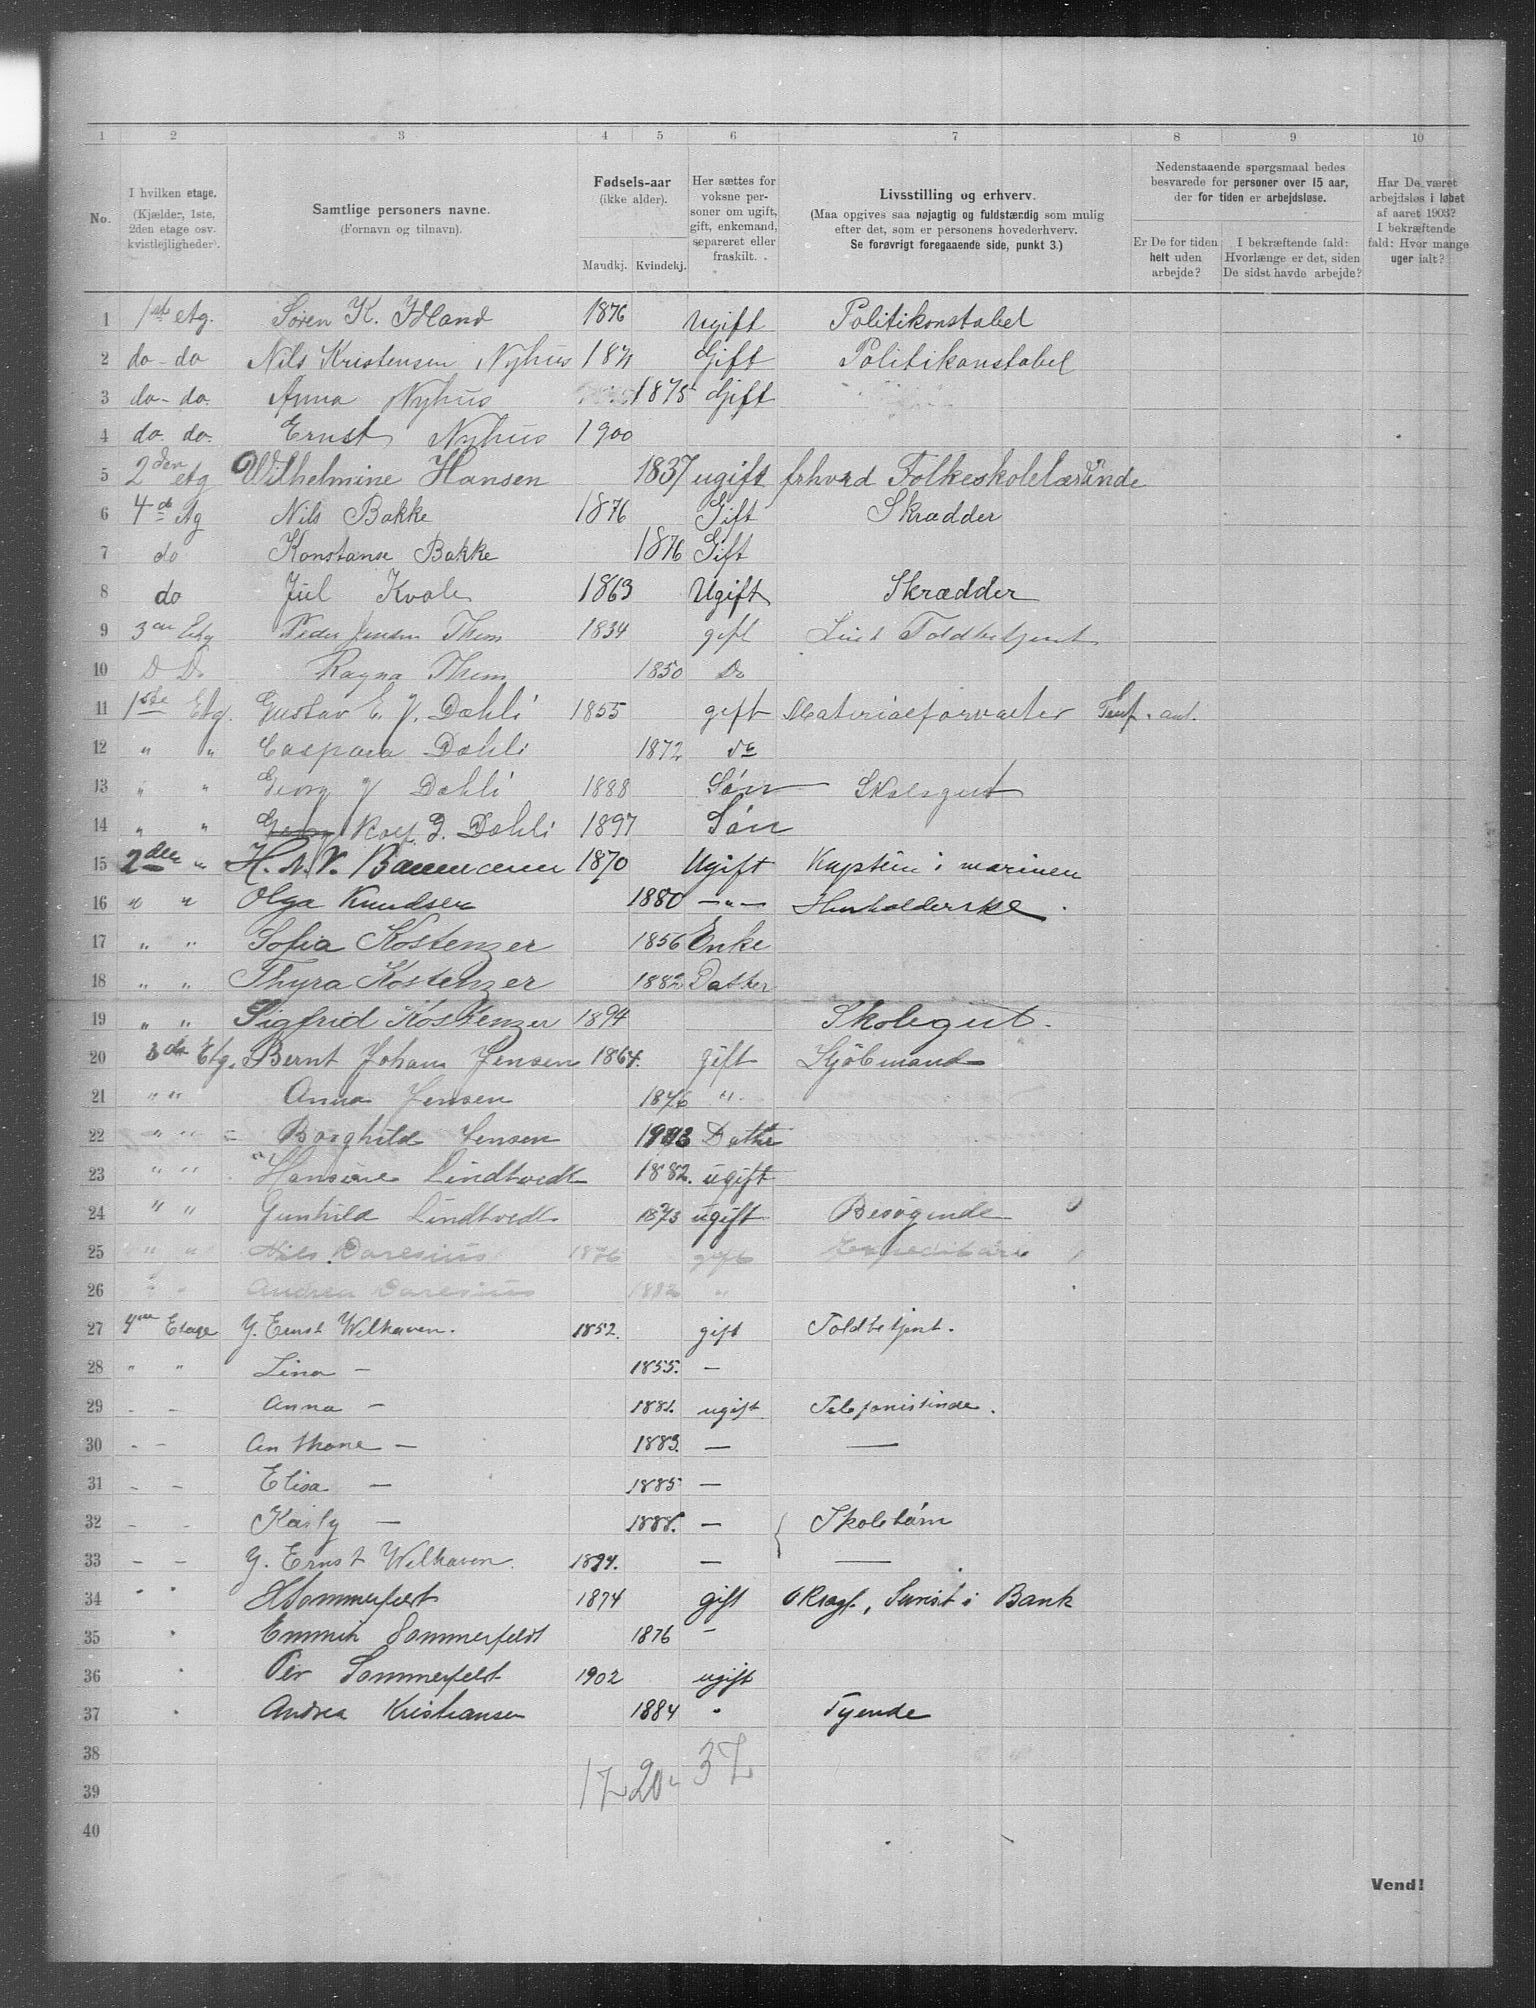 1 2 3 4 5 6 7 8 9 10
No.
I hvilken etage.
(Kjælder, 1ste, 2den etage osv. kvistlejligheder).
Samtlige personers navne.
(Fornavn og tilnavn).
Fødsels-aar
(ikke alder).
Mandkj. Kvindekj.
Her sættes for voksne personer om ugift, gift, enkemand, separeret eller fraskilt.
Livsstilling og erhverv.
(Maa opgives saa nøjagtig og fuldstændig som mulig efter det, som er personens hovederhverv.
Se forøvrigt foregaaende side, punkt 3.)
Nedenstaaende spørgsmaal bedes besvarede for personer over 15 aar, der for tiden er arbejdsløse.
Er De for tiden helt uden arbejde?
I bekræftende fald: Hvorlænge er det, siden De sidst havde arbejde?
Har De været arbejdsløs i løbet af aaret 1903? I bekræftende fald: Hvor mange uger ialt?
1 1ste etg. Søren K. Ydland 1876 Ugift Politikonstabel
2 do - do Nils Kristensen Nyhus 1871 Gift Politikonstabel
3 do - do. Anna Nyhus 1875 Gift
4 do. do. Ernst Nyhus 1900
5 2den etg Wilhelmine Hansen 1837 ugift frhvrd Folkeskolelærinde
6 4de Etg Nils Bakke 1876 Gift Skrædder
7 do Konstanse Bakke 1876 Gift
8 do Jul Kvale 1863 Ugift Skrædder
9 3die Etg Peder Jensen Them 1834 gift Toldbetjent
10 D Do Ragna Them 1850 Do
11 1ste Etg. Gustav E. J. Dahli 1855 gift Materialforvalter
12 " " Caspara Dahli 1872 do
13 " " Georg J Dahli 1888 Søn Skolegut
14 " " Georg Rolf G. Dahli 1897 Søn
15 2den " H. A. V. 1870 Ugift Kaptein i marinen
16 " " Olga Knudsen 1880 - " - Husholderske.
17 " " Sofia Kostenzer 1856 Enke
18 " " Thyra Kostenzer 1882 Datter
19 " " Sigfrid Kostenzer 1894 Skolegut.
20 3die Etg. Bernt Johan Jensen 1864. gift Kjøbmand
21 " " Anna Jensen 1876 "
22 " " Borghild Jensen 1903 Datter
23 " " Hansine Lindtvedt 1882. ugift
24 " " Gunhild Lindtvedt 1873 ugift Besøgende
25 " " Nils Daresius 1876 gift
26 " " Andrea Daresius 1882 "
27 4de Etage J. Ernst Welhaven. 1852. gift Toldbetjent.
28 " " Lina - 1855. -
29 - - Anna - 1881. ugift Telefonistinde.
30 - - Anthone - 1883. - -
31 - - Elisa - 1885 -
32 - - Kasty - 1888. - Skolebørn
33 - - J. Ernst Welhaven. 1894. - -
34 " " Sommerfeldt 1874 gift Bank
35 " Emmih Sommerfeldt 1876 -
36 " Per Sommerfeldt 1902 ugift
37 " Andrea Kristiansen 1884 " Tyende
38
39 17 20 37
40
Vend!